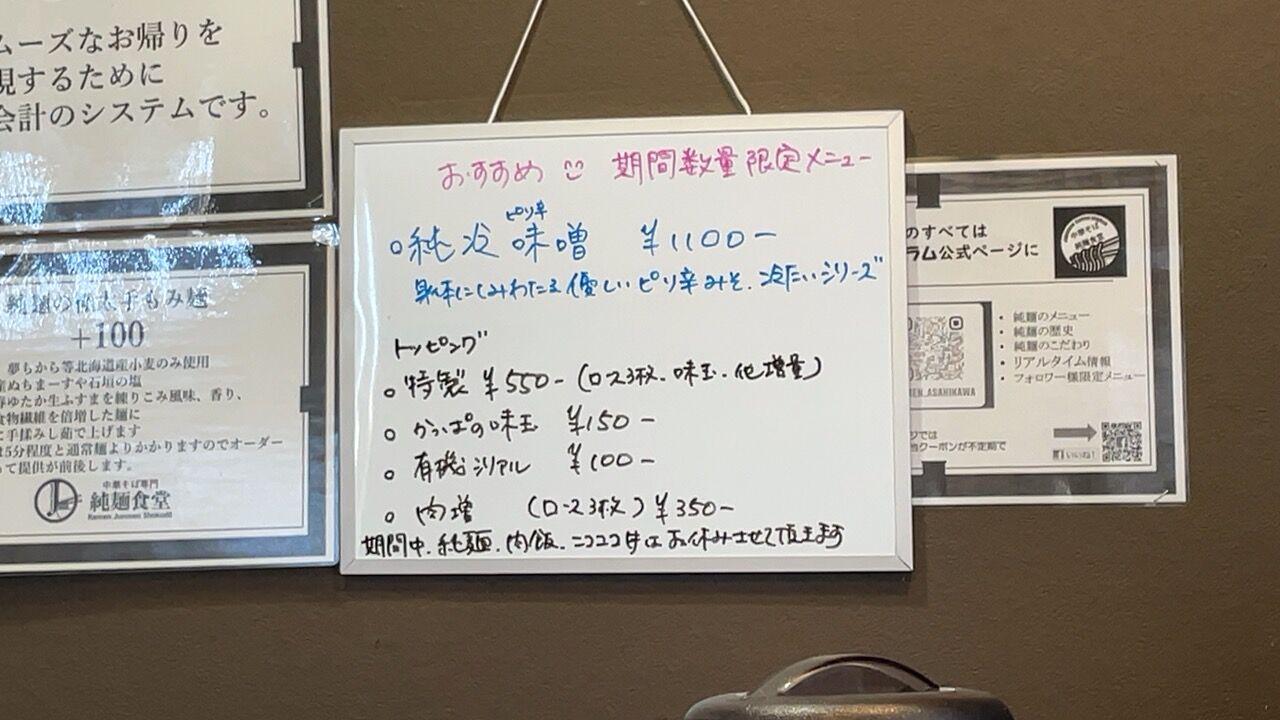 ムーズなお帰りを
現するために
会計のシステムです。
純麺の極太手もみ麺
+100
夢ちから等北海道産小麦のみ使用
産ぬちまーすや石垣の塩
春ゆたか生ふすまを練りこみ風味、香り、
食物繊維を倍増した麺に
に手揉みし茹で上げます
は5分程度と通常麺よりかかりますのでオーダー
って提供が前後します。
中華そば専門
純麺食堂
おすすめ 期間数量限定メニュー
ピリ辛
○純冷味噌 ¥1100-
身体にしみわたる優しいピリ辛みそ。冷たいシリーズ
トッピング
○特製 ¥550-(ロース3枚.味玉.他増量)
○かっぱの味玉 ¥150-
○有機シリアル ¥100-
○肉増 (ロース3枚) ¥350-
期間中.純麺.肉飯.ニコニコ丼はお休みさせて頂きます
のすべては
ラム公式ページに
・純麺のメニュー
・純麺の歴史
・純麺のこだわり
・リアルタイム情報
・フォロワー様限定メニュー
MEN_ASAHIKAWA
ジでは
クーポンが不定期で
いいね!